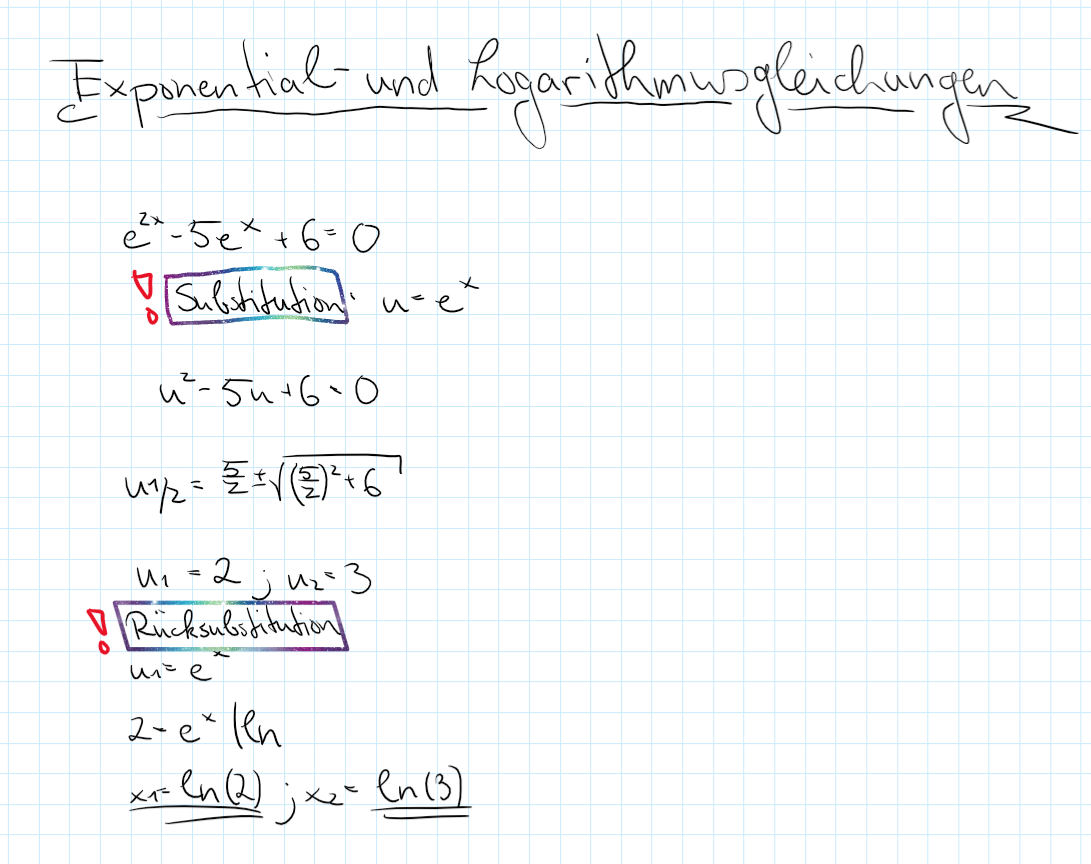 Exponential- und Logarithmusgleichungen
e^{2x} - 5e^x + 6 = 0
! Substitution: u = e^x
u² - 5u + 6 = 0
u1/2 = 5/2 ± √((5/2)² + 6)
u1 = 2 ; u2 = 3
! Rücksubstitution
u1 = e^x
2 = e^x | ln
x1 = ln(2) ; x2 = ln(3)